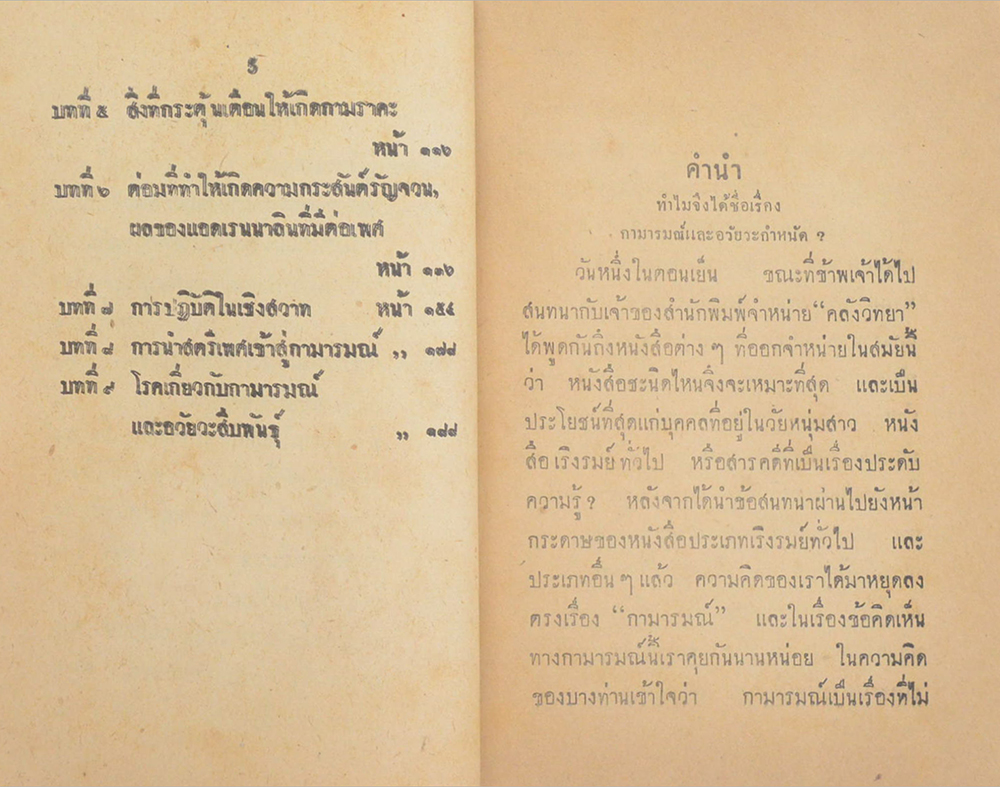 ร
บทที่ ๕ สิ่งที่กระตุ้นเตือนให้เกิดกามราคะ
หน้า ๑๑๖
บทที่ ๖ ต่อมที่ทำให้เกิดความกระสันต์รัญจวน,
ผลของแอดเรนนาลินที่มีต่อเพศ
หน้า ๑๓๖
บทที่ ๗ การปฏิบัติในเชิงสวาท หน้า ๑๕๔
บทที่ ๘ การนำสตรีเพศเข้าสู่กามารมณ์ ,, ๑๗๘
บทที่ ๙ โรคเกี่ยวกับกามารมณ์
และอวัยวะสืบพันธุ์ ,, ๑๘๘
คำนำ
ทำไมจึงได้ชื่อเรื่อง
กามารมณ์และอวัยวะกำหนัด ?
วันหนึ่งในตอนเย็น ขณะที่ข้าพเจ้าได้ไป
สนทนากับเจ้าของสำนักพิมพ์จำหน่าย “คลังวิทยา”
ได้พูดกันถึงหนังสือต่าง ๆ ที่ออกจำหน่ายในสมัยนี้
ว่า หนังสือชะนิดไหนจึงจะเหมาะที่สุด และเป็น
ประโยชน์ที่สุดแก่บุคคลที่อยู่ในวัยหนุ่มสาว หนัง
สือเริงรมย์ทั่วไป หรือสารคดีที่เป็นเรื่องประดับ
ความรู้ ? หลังจากได้นำข้อสนทนาผ่านไปยังหน้า
กระดาษของหนังสือประเภทเริงรมย์ทั่วไป และ
ประเภทอื่น ๆ แล้ว ความคิดของเราได้มาหยุดลง
ตรงเรื่อง “กามารมณ์” และในเรื่องข้อคิดเห็น
ทางกามารมณ์นี้เราคุยกันนานหน่อย ในความคิด
ของบางท่านเข้าใจว่า กามารมณ์เป็นเรื่องที่ไม่